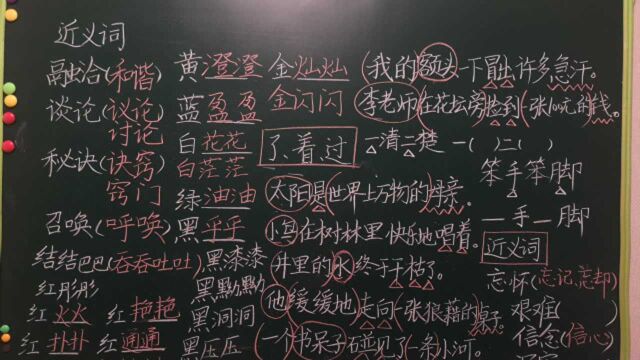 近义词
融洽(和谐)
谈论(议论
讨论
秘诀(诀窍
窍门
召唤(呼唤)
结结巴巴(吞吞吐吐)
红彤彤
红火火 红艳艳
红扑扑 红通通
黄澄澄 金灿灿
蓝盈盈 金闪闪
白花花
白茫茫
绿油油
黑乎乎
黑漆漆
黑黝黝
黑洞洞
黑压压
(我的)额头一下冒出许多急汗。
李老师在花坛旁捡到一张100元的钱。
了、着、过
一清二楚 一( )二( )
笨手笨脚
一手一脚
太阳是(世界上万物的)母亲。
小鸟在树林里快乐地唱着。
井里的水终于干枯了。
他缓缓地走向一张狼藉的桌子。
(一个)书呆子碰见了一条小河。
近义词
忘怀(忘记、忘却)
艰难( )
信念(信心)